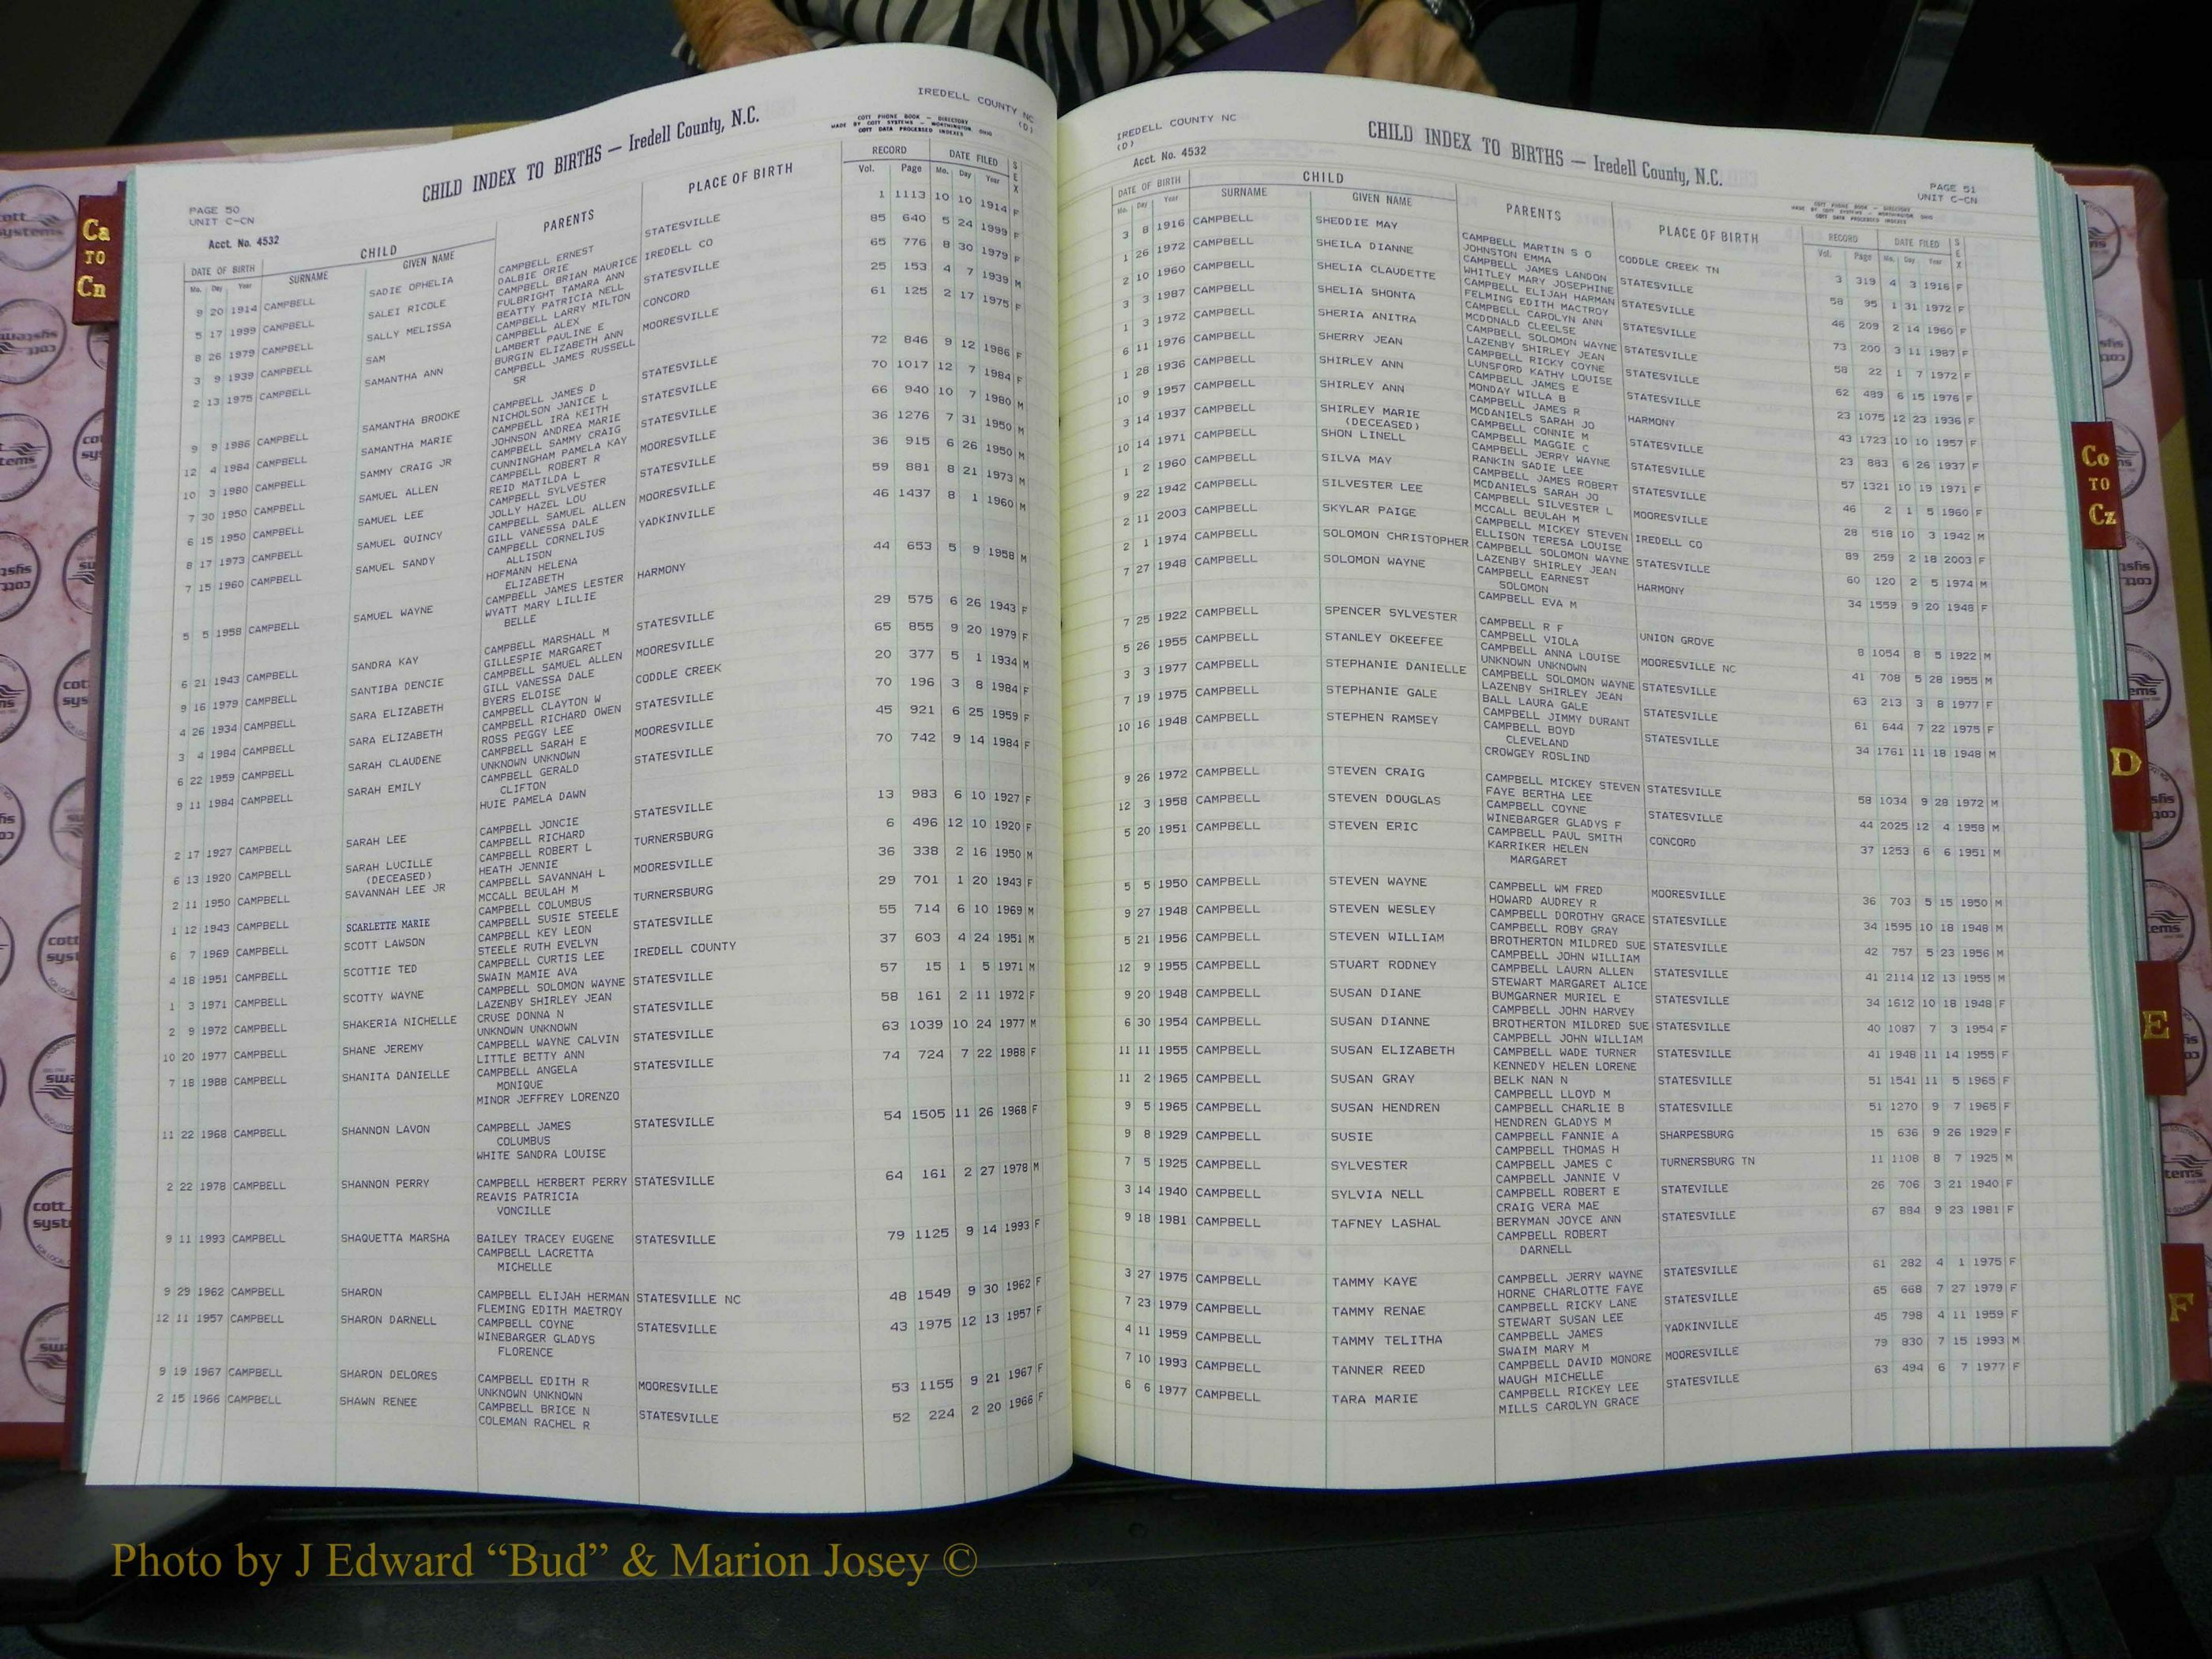 PAGE 50
UNIT C-CN
Acct. No. 4532
CHILD INDEX TO BIRTHS — Iredell County, N.C.
IREDELL COUNTY NC
(D)
COTT PHONE BOOK — DIRECTORY
MADE BY COTT SYSTEMS — WORTHINGTON OHIO
COTT DATA PROCESSED INDEXES
DATE OF BIRTH CHILD PARENTS PLACE OF BIRTH RECORD DATE FILED SEX
Mo. Day Year SURNAME GIVEN NAME Vol. Page Mo. Day Year
9 20 1914 CAMPBELL SADIE OPHELIA CAMPBELL ERNEST STATESVILLE 1 1113 10 10 1914 F
DALBIE ORIE
5 17 1999 CAMPBELL SALEI RICOLE CAMPBELL BRIAN MAURICE IREDELL CO 85 640 5 24 1999 F
FULBRIGHT TAMARA ANN
8 26 1979 CAMPBELL SALLY MELISSA BEATTY PATRICIA NELL STATESVILLE 65 776 8 30 1979 F
CAMPBELL LARRY MILTON
3 9 1939 CAMPBELL SAM CAMPBELL ALEX CONCORD 25 153 4 7 1939 M
LAMBERT PAULINE E
2 13 1975 CAMPBELL SAMANTHA ANN BURGIN ELIZABETH ANN MOORESVILLE 61 125 2 17 1975 F
CAMPBELL JAMES RUSSELL
SR
9 9 1986 CAMPBELL SAMANTHA BROOKE CAMPBELL JAMES D STATESVILLE 72 846 9 12 1986 F
NICHOLSON JANICE L
12 4 1984 CAMPBELL SAMANTHA MARIE CAMPBELL IRA KEITH STATESVILLE 70 1017 12 7 1984 F
JOHNSON ANDREA MARIE
10 3 1980 CAMPBELL SAMMY CRAIG JR CAMPBELL SAMMY CRAIG STATESVILLE 66 940 10 7 1980 M
CUNNINGHAM PAMELA KAY
7 30 1950 CAMPBELL SAMUEL ALLEN CAMPBELL ROBERT R MOORESVILLE 36 1276 7 31 1950 M
REID MATILDA L
6 15 1950 CAMPBELL SAMUEL LEE CAMPBELL SYLVESTER STATESVILLE 36 915 6 26 1950 M
JOLLY HAZEL LOU
8 17 1973 CAMPBELL SAMUEL QUINCY CAMPBELL SAMUEL ALLEN MOORESVILLE 59 881 8 21 1973 M
GILL VANESSA DALE
7 15 1960 CAMPBELL SAMUEL SANDY CAMPBELL CORNELIUS YADKINVILLE 46 1437 8 1 1960 M
ALLISON
HOFMANN HELENA
ELIZABETH
5 5 1958 CAMPBELL SAMUEL WAYNE CAMPBELL JAMES LESTER HARMONY 44 653 5 9 1958 M
WYATT MARY LILLIE
BELLE
6 21 1943 CAMPBELL SANDRA KAY CAMPBELL MARSHALL M STATESVILLE 29 575 6 26 1943 F
GILLESPIE MARGARET
9 16 1979 CAMPBELL SANTIBA DENCIE CAMPBELL SAMUEL ALLEN MOORESVILLE 65 855 9 20 1979 F
GILL VANESSA DALE
4 26 1934 CAMPBELL SARA ELIZABETH BYERS ELOISE CODDLE CREEK 20 377 5 1 1934 M
CAMPBELL CLAYTON W
3 4 1984 CAMPBELL SARA ELIZABETH CAMPBELL RICHARD OWEN STATESVILLE 70 196 3 8 1984 F
ROSS PEGGY LEE
6 22 1959 CAMPBELL SARAH CLAUDENE CAMPBELL SARAH E MOORESVILLE 45 921 6 25 1959 F
UNKNOWN UNKNOWN
9 11 1984 CAMPBELL SARAH EMILY CAMPBELL GERALD STATESVILLE 70 742 9 14 1984 F
CLIFTON
HUIE PAMELA DAWN
2 17 1927 CAMPBELL SARAH LEE CAMPBELL JONCIE STATESVILLE 13 983 6 10 1927 F
CAMPBELL RICHARD
6 13 1920 CAMPBELL SARAH LUCILLE CAMPBELL ROBERT L TURNERSBURG 6 496 12 10 1920 F
(DECEASED) HEATH JENNIE
2 11 1950 CAMPBELL SAVANNAH LEE JR CAMPBELL SAVANNAH L MOORESVILLE 36 338 2 16 1950 M
MCCALL BEULAH M
1 12 1943 CAMPBELL SCARLETTE MARIE CAMPBELL COLUMBUS TURNERSBURG 29 701 1 20 1943 F
CAMPBELL SUSIE STEELE
6 7 1969 CAMPBELL SCOTT LAWSON CAMPBELL KEY LEON STATESVILLE 55 714 6 10 1969 M
STEELE RUTH EVELYN
4 18 1951 CAMPBELL SCOTTIE TED CAMPBELL CURTIS LEE IREDELL COUNTY 37 603 4 24 1951 M
SWAIN MAMIE AVA
1 3 1971 CAMPBELL SCOTTY WAYNE CAMPBELL SOLOMON WAYNE STATESVILLE 57 15 1 5 1971 M
LAZENBY SHIRLEY JEAN
2 9 1972 CAMPBELL SHAKERIA NICHELLE CRUSE DONNA N STATESVILLE 58 161 2 11 1972 F
UNKNOWN UNKNOWN
10 20 1977 CAMPBELL SHANE JEREMY CAMPBELL WAYNE CALVIN STATESVILLE 63 1039 10 24 1977 M
LITTLE BETTY ANN
7 18 1988 CAMPBELL SHANITA DANIELLE CAMPBELL ANGELA STATESVILLE 74 724 7 22 1988 F
MONIQUE
MINOR JEFFREY LORENZO
11 22 1968 CAMPBELL SHANNON LAVON CAMPBELL JAMES STATESVILLE 54 1505 11 26 1968 F
COLUMBUS
WHITE SANDRA LOUISE
2 22 1978 CAMPBELL SHANNON PERRY CAMPBELL HERBERT PERRY STATESVILLE 64 161 2 27 1978 M
REAVIS PATRICIA
VONCILLE
9 11 1993 CAMPBELL SHAQUETTA MARSHA BAILEY TRACEY EUGENE STATESVILLE 79 1125 9 14 1993 F
CAMPBELL LACRETTA
MICHELLE
9 29 1962 CAMPBELL SHARON CAMPBELL ELIJAH HERMAN STATESVILLE NC 48 1549 9 30 1962 F
FLEMING EDITH MAETROY
12 11 1957 CAMPBELL SHARON DARNELL CAMPBELL COYNE STATESVILLE 43 1975 12 13 1957 F
WINEBARGER GLADYS
FLORENCE
9 19 1967 CAMPBELL SHARON DELORES CAMPBELL EDITH R MOORESVILLE 53 1155 9 21 1967 F
UNKNOWN UNKNOWN
2 15 1966 CAMPBELL SHAWN RENEE CAMPBELL BRICE N STATESVILLE 52 224 2 20 1966 F
COLEMAN RACHEL R
IREDELL COUNTY NC
(D)
Acct. No. 4532
CHILD INDEX TO BIRTHS — Iredell County, N.C.
PAGE 51
UNIT C-CN
COTT PHONE BOOK — DIRECTORY
MADE BY COTT SYSTEMS — WORTHINGTON OHIO
COTT DATA PROCESSED INDEXES
DATE OF BIRTH CHILD PARENTS PLACE OF BIRTH RECORD DATE FILED SEX
Mo. Day Year SURNAME GIVEN NAME Vol. Page Mo. Day Year
3 8 1916 CAMPBELL SHEDDIE MAY CAMPBELL MARTIN S O CODDLE CREEK TN 3 319 4 3 1916 F
JOHNSTON EMMA
1 26 1972 CAMPBELL SHEILA DIANNE CAMPBELL JAMES LANDON STATESVILLE 58 95 1 31 1972 F
WHITLEY MARY JOSEPHINE
2 10 1960 CAMPBELL SHELIA CLAUDETTE CAMPBELL ELIJAH HARMAN STATESVILLE 46 209 2 14 1960 F
FELMING EDITH MACTROY
3 3 1987 CAMPBELL SHELIA SHONTA CAMPBELL CAROLYN ANN STATESVILLE 73 200 3 11 1987 F
MCDONALD CLEELSE
1 3 1972 CAMPBELL SHERIA ANITRA CAMPBELL SOLOMON WAYNE STATESVILLE 58 22 1 7 1972 F
LAZENBY SHIRLEY JEAN
6 11 1976 CAMPBELL SHERRY JEAN CAMPBELL RICKY COYNE STATESVILLE 62 489 6 15 1976 F
LUNSFORD KATHY LOUISE
1 28 1936 CAMPBELL SHIRLEY ANN CAMPBELL JAMES E STATESVILLE 23 1075 12 23 1936 F
MONDAY WILLA B
10 9 1957 CAMPBELL SHIRLEY ANN CAMPBELL JAMES R HARMONY 43 1723 10 10 1957 F
MCDANIELS SARAH JO
3 14 1937 CAMPBELL SHIRLEY MARIE CAMPBELL CONNIE M STATESVILLE 23 883 6 26 1937 F
(DECEASED) CAMPBELL MAGGIE C
10 14 1971 CAMPBELL SHON LINELL CAMPBELL JERRY WAYNE STATESVILLE 57 1321 10 19 1971 F
RANKIN SADIE LEE
1 2 1960 CAMPBELL SILVA MAY CAMPBELL JAMES ROBERT STATESVILLE 46 2 1 5 1960 F
MCDANIELS SARAH JO
9 22 1942 CAMPBELL SILVESTER LEE CAMPBELL SILVESTER L MOORESVILLE 28 518 10 3 1942 M
MCCALL BEULAH M
2 11 2003 CAMPBELL SKYLAR PAIGE CAMPBELL MICKEY STEVEN IREDELL CO 89 259 2 18 2003 F
ELLISON TERESA LOUISE
2 1 1974 CAMPBELL SOLOMON CHRISTOPHER CAMPBELL SOLOMON WAYNE STATESVILLE 60 120 2 5 1974 M
LAZENBY SHIRLEY JEAN
7 27 1948 CAMPBELL SOLOMON WAYNE CAMPBELL EARNEST HARMONY 34 1559 9 20 1948 F
SOLOMON
CAMPBELL EVA M
7 25 1922 CAMPBELL SPENCER SYLVESTER CAMPBELL R F UNION GROVE 8 1054 8 5 1922 M
CAMPBELL VIOLA
5 26 1955 CAMPBELL STANLEY OKEEFEE CAMPBELL ANNA LOUISE MOORESVILLE NC 41 708 5 28 1955 M
UNKNOWN UNKNOWN
3 3 1977 CAMPBELL STEPHANIE DANIELLE CAMPBELL SOLOMON WAYNE STATESVILLE 63 213 3 8 1977 F
LAZENBY SHIRLEY JEAN
7 19 1975 CAMPBELL STEPHANIE GALE BALL LAURA GALE STATESVILLE 61 644 7 22 1975 F
CAMPBELL JIMMY DURANT
10 16 1948 CAMPBELL STEPHEN RAMSEY CAMPBELL BOYD STATESVILLE 34 1761 11 18 1948 M
CLEVELAND
CROWGEY ROSLIND
9 26 1972 CAMPBELL STEVEN CRAIG CAMPBELL MICKEY STEVEN STATESVILLE 58 1034 9 28 1972 M
FAYE BERTHA LEE
12 3 1958 CAMPBELL STEVEN DOUGLAS CAMPBELL COYNE STATESVILLE 44 2025 12 4 1958 M
WINEBARGER GLADYS F
5 20 1951 CAMPBELL STEVEN ERIC CAMPBELL PAUL SMITH CONCORD 37 1253 6 6 1951 M
KARRIKER HELEN
MARGARET
5 5 1950 CAMPBELL STEVEN WAYNE CAMPBELL WM FRED MOORESVILLE 36 703 5 15 1950 M
HOWARD AUDREY R
9 27 1948 CAMPBELL STEVEN WESLEY CAMPBELL DOROTHY GRACE STATESVILLE 34 1595 10 18 1948 M
CAMPBELL ROBY GRAY
5 21 1956 CAMPBELL STEVEN WILLIAM BROTHERTON MILDRED SUE STATESVILLE 42 757 5 23 1956 M
CAMPBELL JOHN WILLIAM
12 9 1955 CAMPBELL STUART RODNEY CAMPBELL LAURN ALLEN STATESVILLE 41 2114 12 13 1955 M
STEWART MARGARET ALICE
9 20 1948 CAMPBELL SUSAN DIANE BUMGARNER MURIEL E STATESVILLE 34 1612 10 18 1948 F
CAMPBELL JOHN HARVEY
6 30 1954 CAMPBELL SUSAN DIANNE BROTHERTON MILDRED SUE STATESVILLE 40 1087 7 3 1954 F
CAMPBELL JOHN WILLIAM
11 11 1955 CAMPBELL SUSAN ELIZABETH CAMPBELL WADE TURNER STATESVILLE 41 1948 11 14 1955 F
KENNEDY HELEN LORENE
11 2 1965 CAMPBELL SUSAN GRAY BELK NAN N STATESVILLE 51 1541 11 5 1965 F
CAMPBELL LLOYD M
9 5 1965 CAMPBELL SUSAN HENDREN CAMPBELL CHARLIE B STATESVILLE 51 1270 9 7 1965 F
HENDREN GLADYS M
9 8 1929 CAMPBELL SUSIE CAMPBELL FANNIE A SHARPESBURG 15 636 9 26 1929 F
CAMPBELL THOMAS H
7 5 1925 CAMPBELL SYLVESTER CAMPBELL JAMES C TURNERSBURG TN 11 1108 8 7 1925 M
CAMPBELL JANNIE V
3 14 1940 CAMPBELL SYLVIA NELL CAMPBELL ROBERT E STATEVILLE 26 706 3 21 1940 F
CRAIG VERA MAE
9 18 1981 CAMPBELL TAFNEY LASHAL BERYMAN JOYCE ANN STATESVILLE 67 884 9 23 1981 F
CAMPBELL ROBERT
DARNELL
3 27 1975 CAMPBELL TAMMY KAYE CAMPBELL JERRY WAYNE STATESVILLE 61 282 4 1 1975 F
HORNE CHARLOTTE FAYE
7 23 1979 CAMPBELL TAMMY RENAE CAMPBELL RICKY LANE STATESVILLE 65 668 7 27 1979 F
STEWART SUSAN LEE
4 11 1959 CAMPBELL TAMMY TELITHA CAMPBELL JAMES YADKINVILLE 45 798 4 11 1959 F
SWAIM MARY M
7 10 1993 CAMPBELL TANNER REED CAMPBELL DAVID MONORE MOORESVILLE 79 830 7 15 1993 M
WAUGH MICHELLE
6 6 1977 CAMPBELL TARA MARIE CAMPBELL RICKEY LEE STATESVILLE 63 494 6 7 1977 F
MILLS CAROLYN GRACE
Ca
TO
Cn
Co
TO
Cz
D
E
F
Photo by J Edward “Bud” & Marion Josey ©